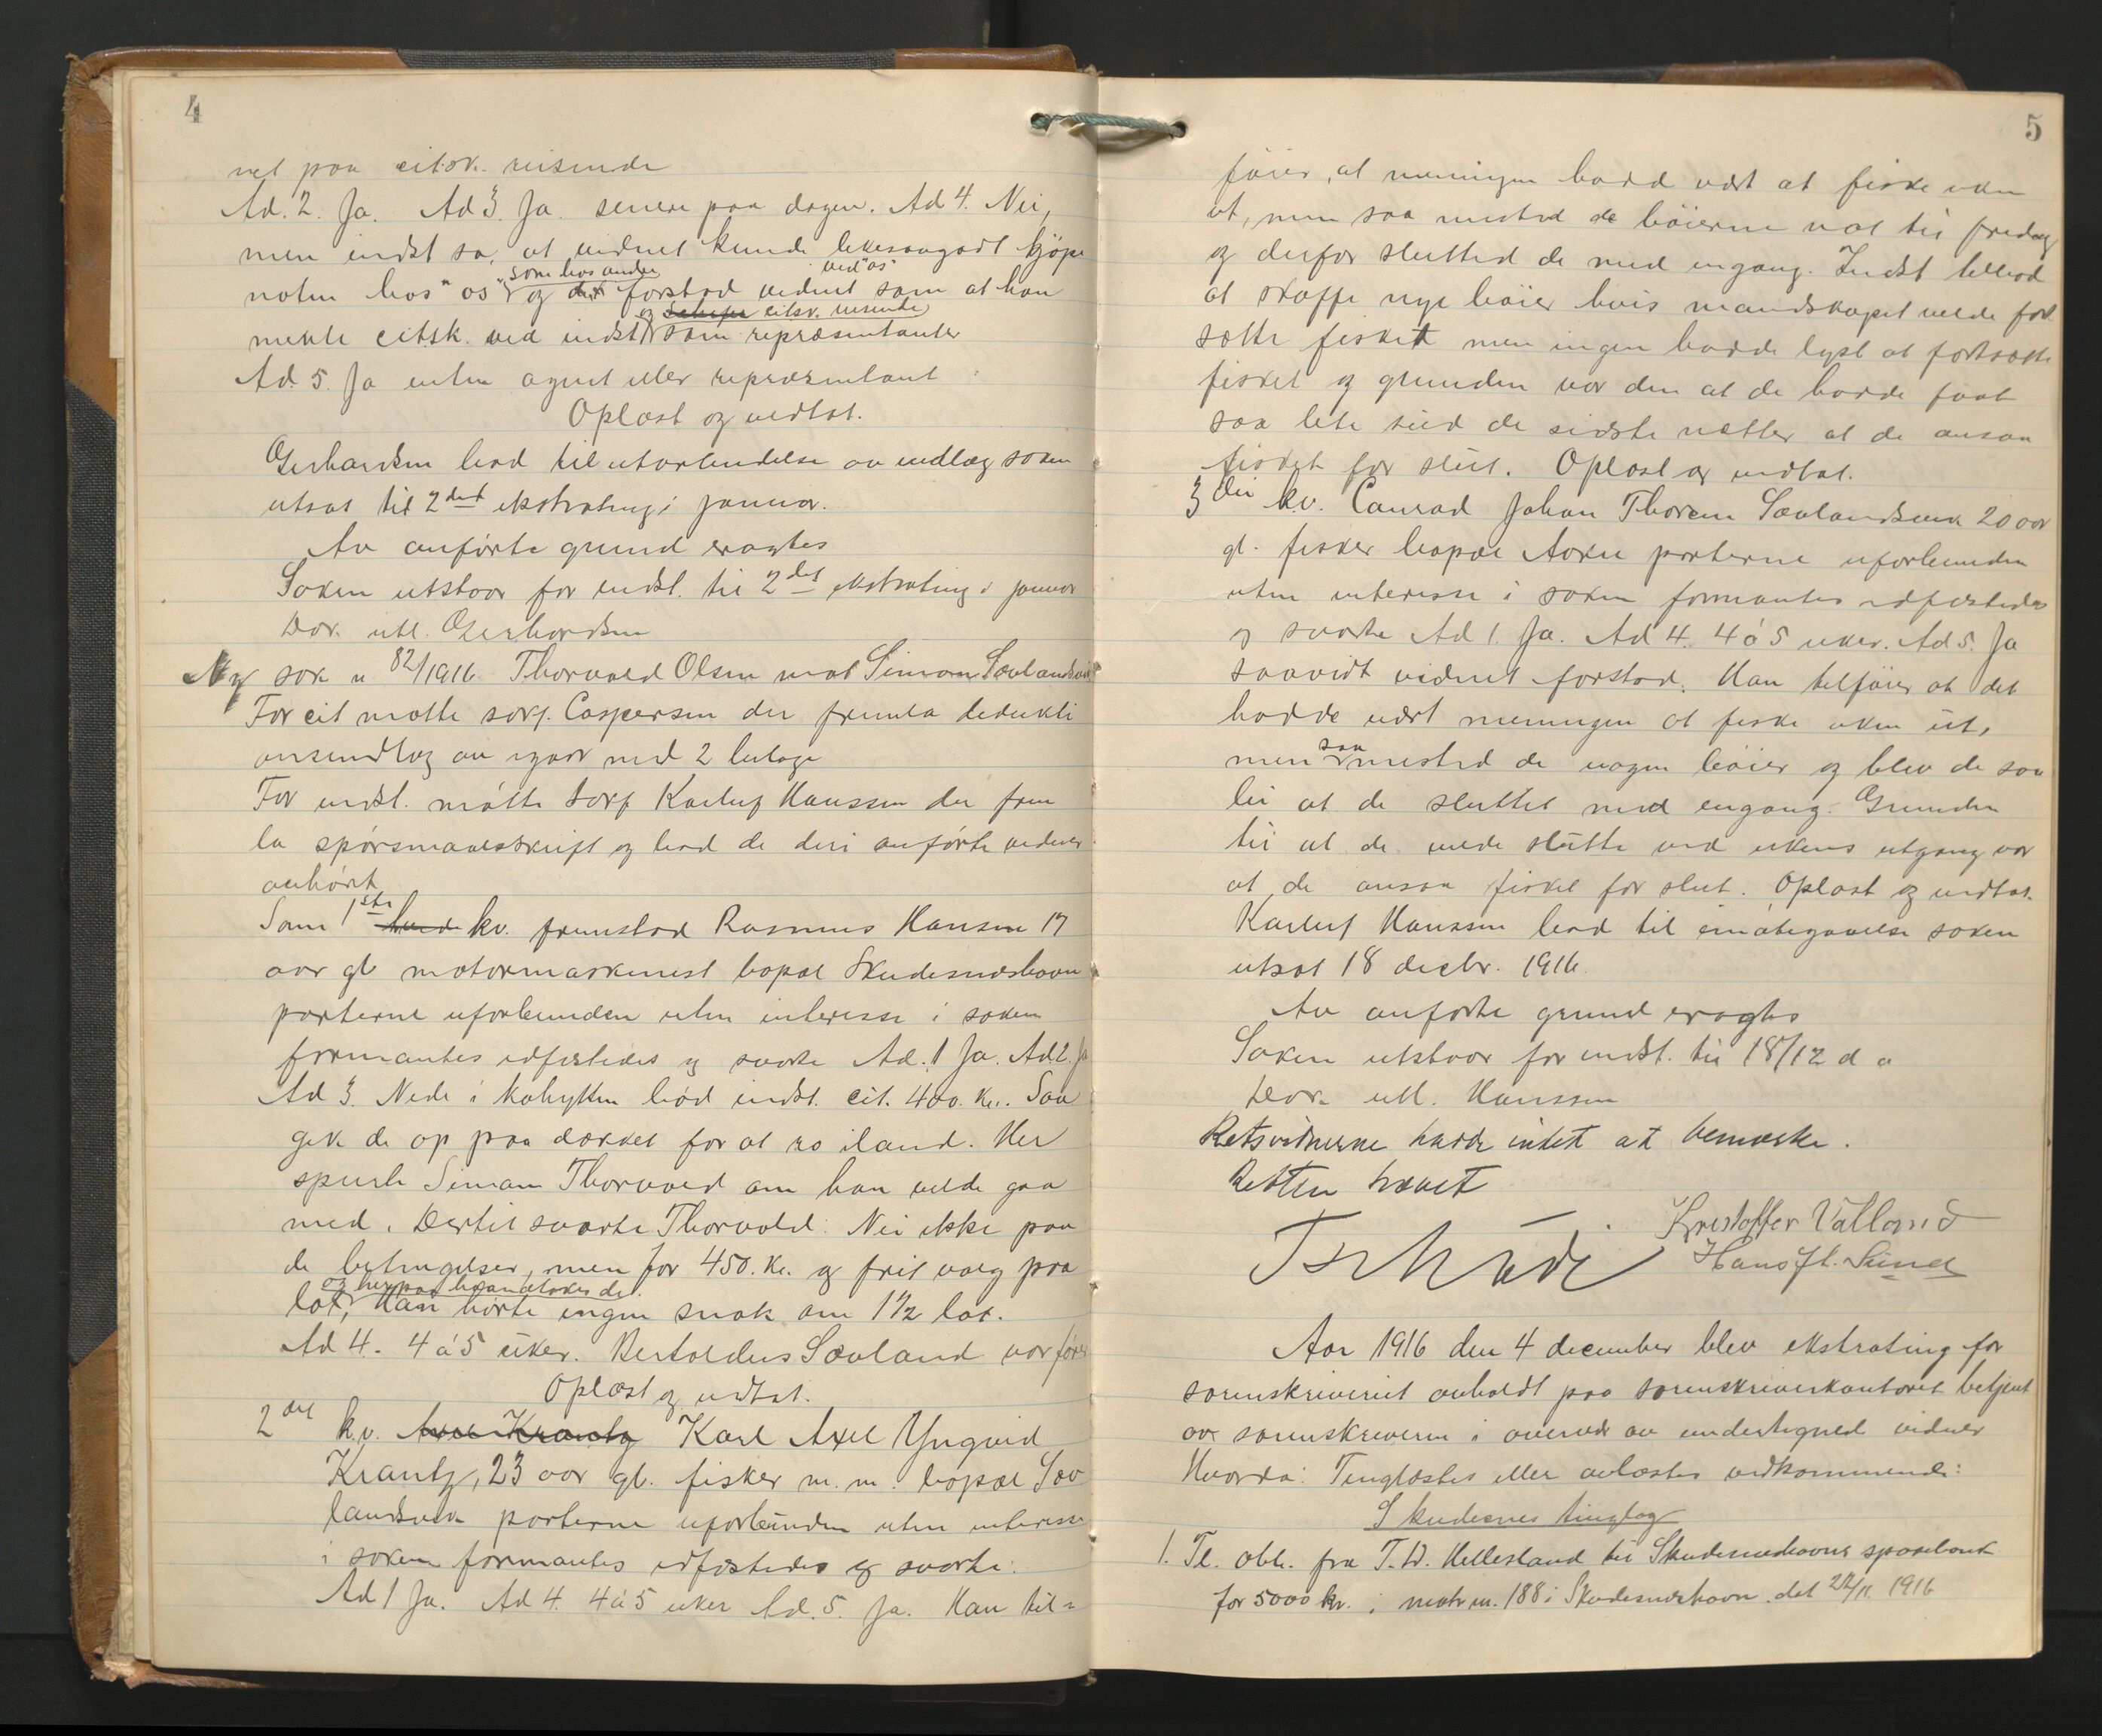 4
vet paa citsk. reisende
Ad. 2. Ja. Ad 3. Ja. senere paa dagen. Ad 4. Nei,
men indst sa, at vidnet kunde likesaagodt kjøpe
noten hos "os" "som hos andre" og det forstod vidnet som at han ved "os"
mente citsk. ved indst og citsk. reisende som repræsentanter
Ad. 5. Ja enten agent eller repræsentant
Oplæst og vedtat.
Gerhardsen bad til utarbeidelse av indlæg saken
utsat til 2det ekstrating i januar.
Av anførte grund eragtes
Saken utstaar for indst. til 2det ekstrating i januar
Dok. utl. Gerhardsen
Ny sak nr 82/1916 Thorvald Olsen mot Simon Sævlandsvik
For cit møtte sakf. Caspersen der fremla deduktions
indlæg av igaar med 2 bilage
For indst. møtte sakf Karluf Hanssen der frem
la spørsmaalsskrift og bad de deri anførte vidner
avhørt
Som 1ste kv. fremstod Rasmus Hansen 17
aar gl motormaskinist bopæl Skudesneshavn
parterne uforbunden uten interesse i saken
formantes edfæstedes og svarte Ad. 1 Ja. Ad 2. Ja
Ad 3. Nede i kahytten bød indst. cit. 400. kr. Saa
gik de op paa dækket for at ro iland. Her
spurte Simon Thorvald om han vilde gaa
med. Dertil svarte Thorvald: Nei ikke paa
de betingelser, men for 450. kr. og frit valg paa
lot, og herpaa haandtokes de. Han hørte ingen snak om 1½ lot.
Ad 4. 4 á 5 uker. Bertoldus Sævland var fører
Oplæst og vedtat.
2det kv. Axel Krantz Karl Axel Yngvid
Krantz, 23 aar gl. fisker m. m. bopæl Sæv
landsvik parterne uforbunden uten interesse
i saken formantes edfæstedes og svarte:
Ad 1 Ja. Ad 4. 4 á 5 uker Ad. 5. Ja. Han til=
5
føier, at meningen hadde vært at fiske uken
ut, men saa mistet de bøierne nat til fredag
og derfor sluttet de med engang. Indst tilbød
at skaffe nye bøier hvis mandskapet vilde fort
sætte fisket men ingen hadde lyst at fortsætte
fisket og grunden var den at de hadde faat
saa lite sild de sidste nætter at de ansaa
fisket for slut. Oplæst og vedtat.
3die kv. Conrad Johan Thorsen Sævlandsvik 20 aar
gl. fisker bopæl Aakre parterne uforbunden
uten interesse i saken formantes edfæstedes
og svarte Ad 1. Ja. Ad 4. 4 á 5 uker. Ad 5. Ja
saavidt vidnet forstod. Han tilføier at det
hadde vært meningen at fiske uken ut,
men saa mistet de nogen bøier og blev de saa
bei at de sluttet med engang. Grunden
til at de vilde slutte ved ukens utgang var
at de ansaa fisket for slut. Oplæst og vedtat.
Karluf Hanssen bad til imøtegaaelse saken
utsat 18 decbr. 1916.
Av anførte grund eragtes
Saken utstaar for indst. til 18/12 d a
Dok. utl. Hanssen
Retsvidnerne hadde intet at bemerke.
Retten hævet
Kristoffer Valland
Hans Fl. Sund
Aar 1916 den 4 december blev ekstrating for
sorenskriveriet avholdt paa sorenskriverkontoret betjent
av sorenskriveren i overvær av undertegnede vidner
Hvorda: Tinglæstes eller avlæstes vedkommende:
Skudesnes tinglag
1. Tl. obl. fra T. W. Hillesland til Skudesneshavns sparebank
for 5000 kr. i matr. nr. 188 i Skudesneshavn. dat 22/11 1916